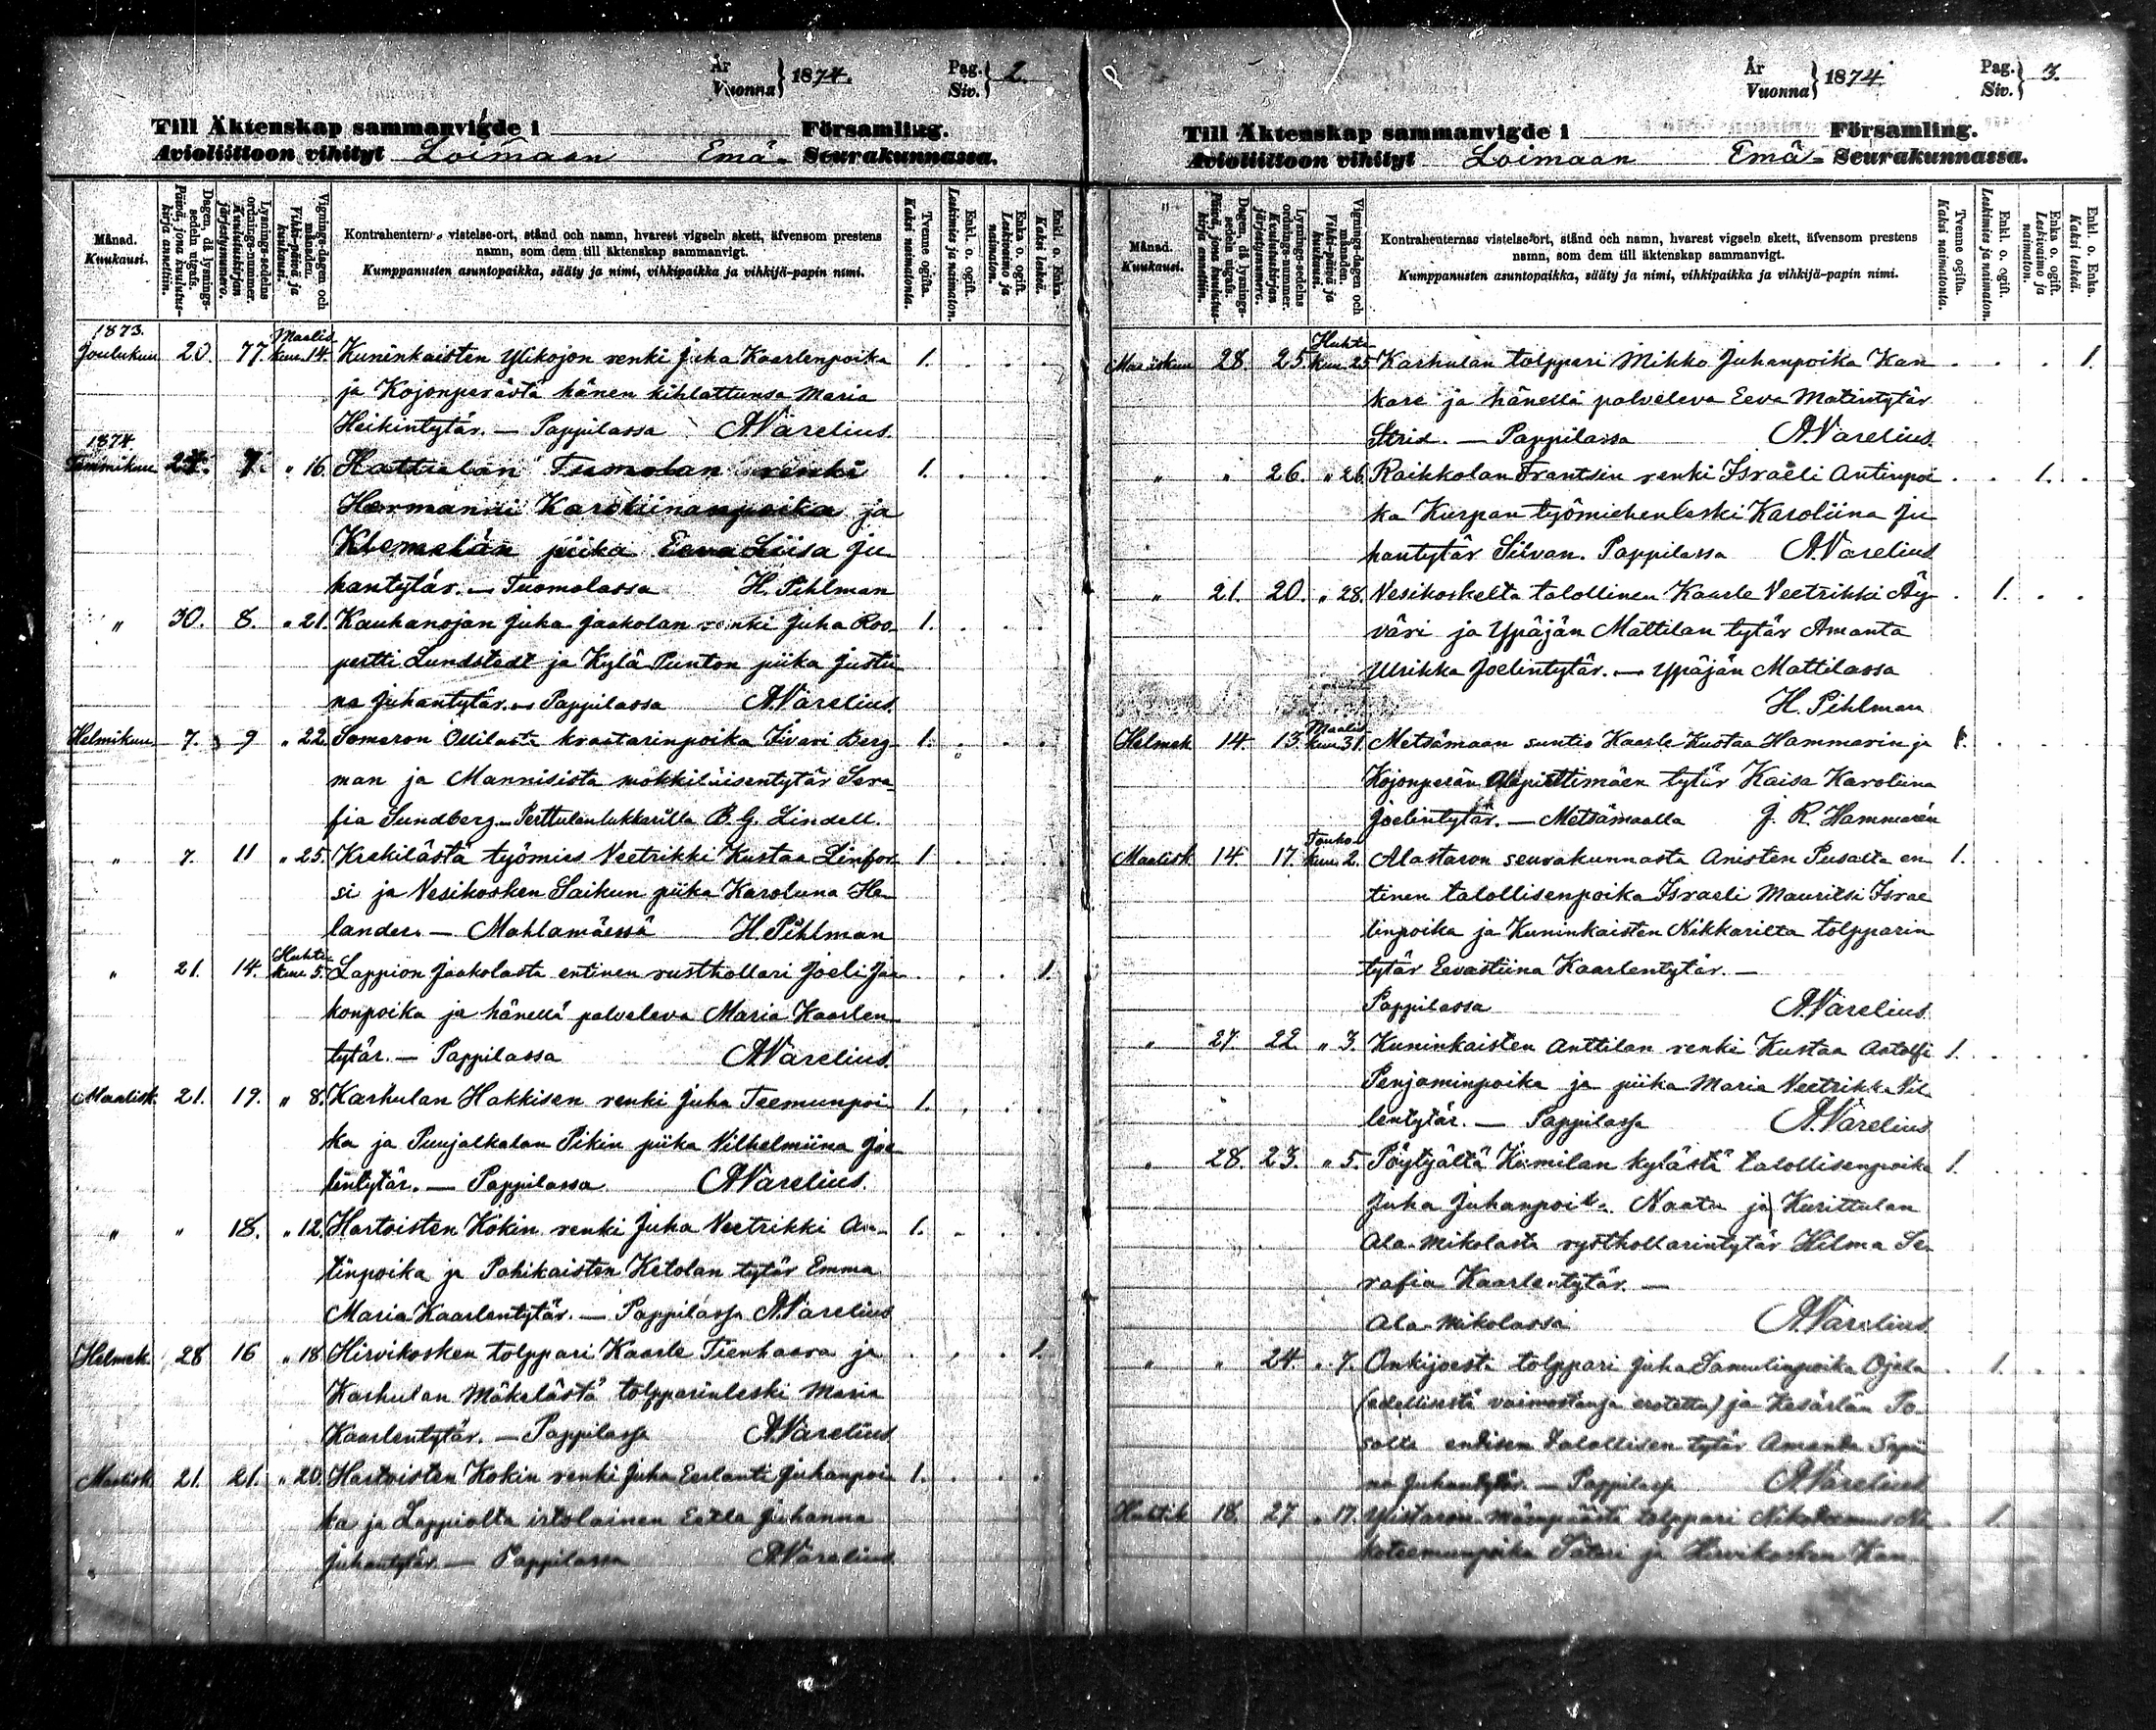 År
Vuonna } 1874.
Pag.
Siv. } 2.
Till Äktenskap sammanvigde i Församling.
Avioliittoon vihityt Loimaan Emä- Seurakunnassa.
Månad.
Kuukausi.
Dagen, då lysnings-sedeln utgafs.
Päivä, jona kuulutus-kirja annettiin.
Lysnings-sedelns ordnings-nummer.
Kuulutuskirjan järjestysnumero.
Vignings-dagen och månaden.
Vihki-päivä ja kuukausi.
Kontrahenternas vistelse-ort, stånd och namn, hvarest vigseln skett, äfvensom prestens
namn, som dem till äktenskap sammanvigt.
Kumppanusten asuntopaikka, sääty ja nimi, vihkipaikka ja vihkijä-papin nimi.
Tvenne ogifta.
Kaksi naimatonta.
Enkl. o. ogift.
Leskimies ja naimaton.
Enka o. ogift.
Leskivaimo ja naimaton.
Enkl. o. Enka.
Kaksi leskeä.
1873. Maalis
Joulukuu 20. 77. kuu. 14. Kuninkaisten Ylikojon renki Juha Kaarlenpoika 1.
ja Kojonperästä hänen kihlattunsa Maria
Heikintytär. — Pappilassa A. Varelius.
1874.
Tammikuu 24. 7. " 16. Hattulan Tuomolan renki 1.
Hermanni Karoliinanpoika ja
Klemelän piika Eeva Liisa Ju
hantytär. — Tuomolassa H. Pihlman
" 30. 8. " 21. Kauhanojan Juha Jaakolan renki Juha Roo- 1.
pertti Lundstedt ja Kylä Punton piika Justii
na Juhantytär. — Pappilassa A. Varelius.
Helmikuu 7. 9 " 22. Someron Ollilasta kraatarinpoika Iivari Berg- 1.
man ja Mannisista mökkiläisentytär Sera
fia Sundberg — Perttulan lukkarilla B. G. Lindell.
" 7. 11 " 25. Krekilästä työmies Veetrikki Kustaa Linfor 1.
si ja Vesikosken Saikun piika Karoliina He
lander. — Mahlamäessä H. Pihlman
Huhti
" 21. 14. kuu 5. Lappion Jaakolasta entinen rusthollari Joeli Jaa 1.
konpoika ja hänellä palveleva Maria Kaarlen
tytär. — Pappilassa A. Varelius.
Maalisk. 21. 19. " 8. Karhulan Hakkisen renki Juha Teemunpoi 1.
ka ja Puujalkalan Pikin piika Vilhelmiina Joe
lintytär. — Pappilassa A. Varelius.
" " 18. " 12. Hartoisten Kökin renki Juha Veetrikki An- 1.
tinpoika ja Pahikaisten Ketolan tytär Emma
Maria Kaarlentytär. — Pappilassa A. Varelius
Helmek. 28 16 " 18 Hirvikosken tolppari Kaarle Tienhaara ja 1.
Karhulan Mäkelästä tolpparinleski Maria
Kaarlentytär. — Pappilassa A. Varelius
Maalisk 21. 21. " 20. Hartoisten Kokin renki Juha Eerlanti Juhanpoi 1.
ka ja Lappiolta irtolainen Eetla Juhanna
Juhantytär. — Pappilassa A. Varelius
År
Vuonna } 1874
Pag.
Siv. } 3.
Till Äktenskap sammanvigde i Församling.
Avioliittoon vihityt Loimaan Emä- Seurakunnassa.
Månad.
Kuukausi.
Dagen, då lysnings-sedeln utgafs.
Päivä, jona kuulutus-kirja annettiin.
Lysnings-sedelns ordnings-nummer.
Kuulutuskirjan järjestysnumero.
Vignings-dagen och månaden.
Vihki-päivä ja kuukausi.
Kontrahenternas vistelse-ort, stånd och namn, hvarest vigseln skett, äfvensom prestens
namn, som dem till äktenskap sammanvigt.
Kumppanusten asuntopaikka, sääty ja nimi, vihkipaikka ja vihkijä-papin nimi.
Tvenne ogifta.
Kaksi naimatonta.
Enkl. o. ogift.
Leskimies ja naimaton.
Enka o. ogift.
Leskivaimo ja naimaton.
Enkl. o. Enka.
Kaksi leskeä.
Huhti
Maaliskuu 28. 25. kuu. 25 Karhulan tolppari Mikko Juhanpoika Kan 1.
kare ja hänellä palveleva Eeva Matintytär
Strid. — Pappilassa A. Varelius
" " 26. " 26 Raikkolan Frantsin renki Israeli Antinpoi 1.
ka Kurpan työmiehenleski Karoliina Ju
hantytär Silvan. Pappilassa A. Varelius
" 21. 20. " 28. Vesikoskelta talollinen Kaarle Veetrikki Äy 1.
väri ja Ypäjän Mattilan tytär Amanta
Ulrikka Joelintytär. — Ypäjän Mattilassa
H. Pihlman
Maalis
Helmek 14. 13. kuu. 31. Metsämaan suntio Kaarle Kustaa Hammarin ja 1.
Kojonperän Alapirttimäen tytär Kaisa Karoliina
Joelintytär. — Metsämaalla J. R. Hammarén
Touko
Maalisk 14. 17. kuu. 2. Alastaron seurakunnasta Anisten Pusalta en 1.
tinen talollisenpoika Israeli Mauritsi Israe
linpoika ja Kuninkaisten Nikkarilta tolpparin
tytär Eevastiina Kaarlentytär. —
Pappilassa A. Varelius
" 27. 22 " 3. Kuninkaisten Anttilan renki Kustaa Aatolfi 1.
Penjaminpoika ja piika Maria Veetrikka Vil
lentytär. — Pappilassa A. Varelius
" 28. 23. " 5. Pöytyältä Kumilan kylästä talollisenpoika 1.
Juha Juhanpoika Naatu ja Kurittulan
Ala-Mikolasta rysthollarintytär Hilma Se
rafia Kaarlentytär. —
Ala-Mikolassa A. Varelius
" " 24. " 7. Onkijoesta tolppari Juha Samulinpoika Ojala 1.
(edellisestä vaimostansa erotettu) ja Kesärlän
entisen talollisen tytär Amanda
na Juhantytär. — Pappilassa A. Varelius
Huhtik 18. 27 " 17. Ylistaron tolppari Nikoteemus Ni 1.
koteemunpoika Tatari ja Hirvikosken Kan